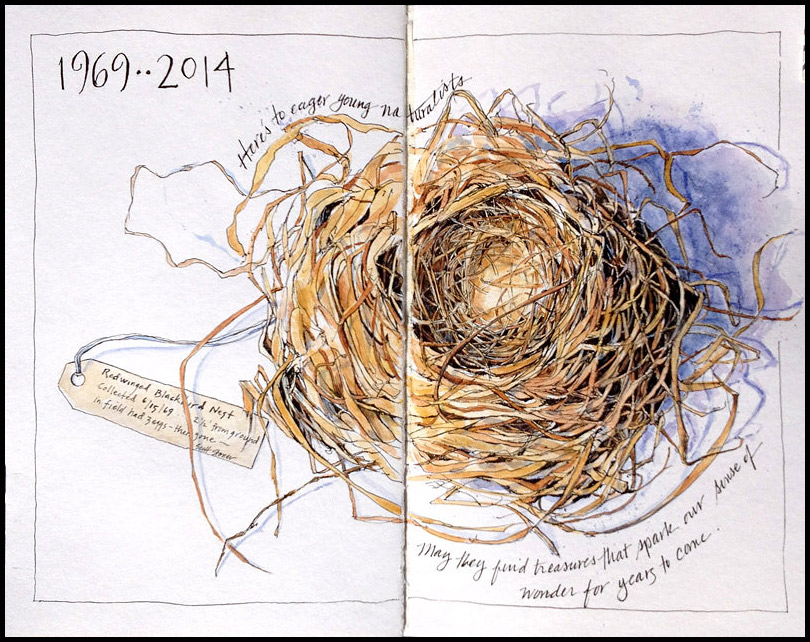 1969..2014
Here's to eager young naturalists
Redwinged Blackbird Nest
Collected 6/15/69 2½' from ground
in field had 3 eggs - then gone
May they find treasures that spark our sense of
wonder for years to come.